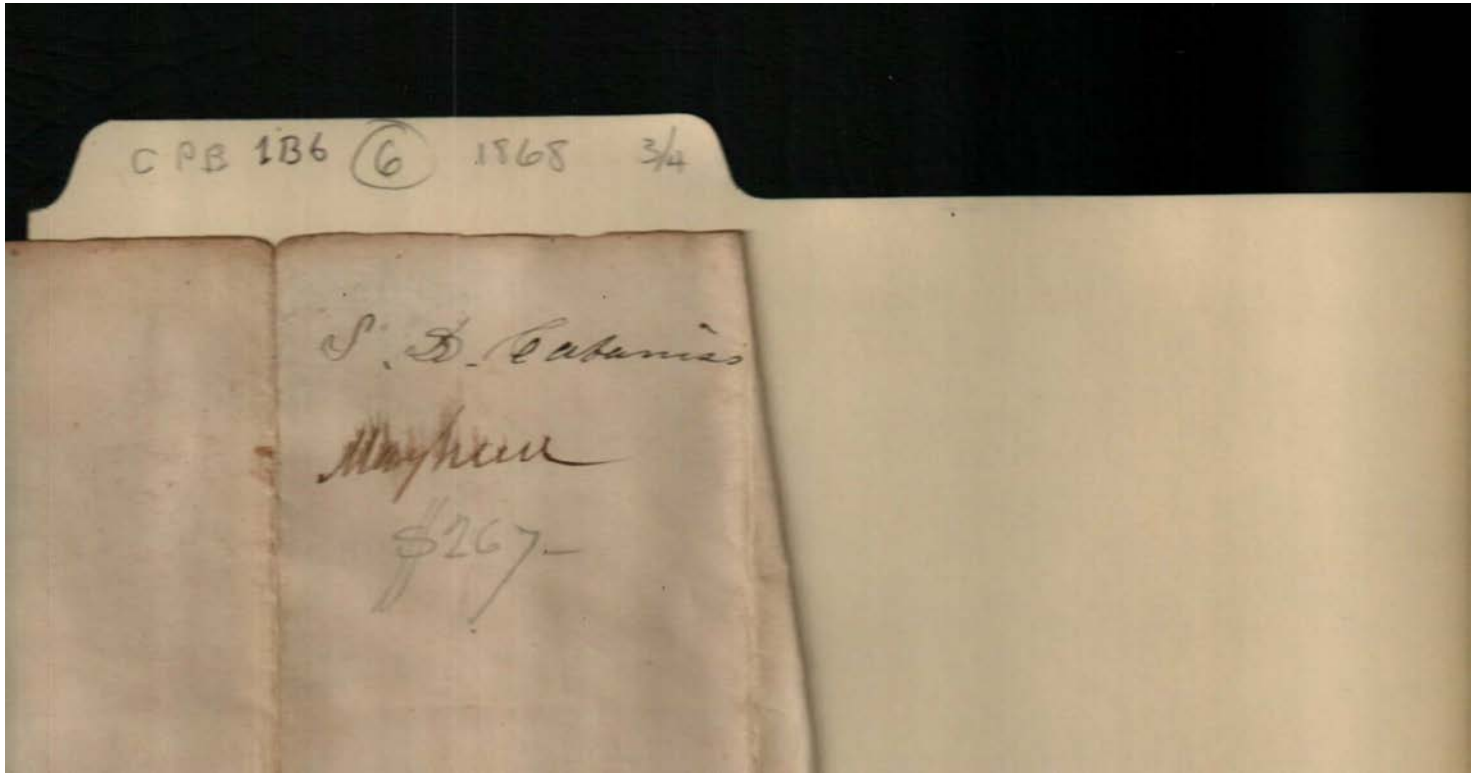 CPB 1B6 6 1868 3/4
S. D. Cabaniss
Mayhew
$267.—